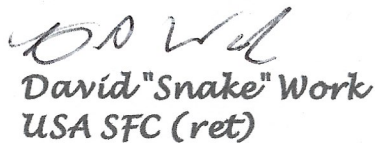 David "Snake" Work
USA SFC (ret)